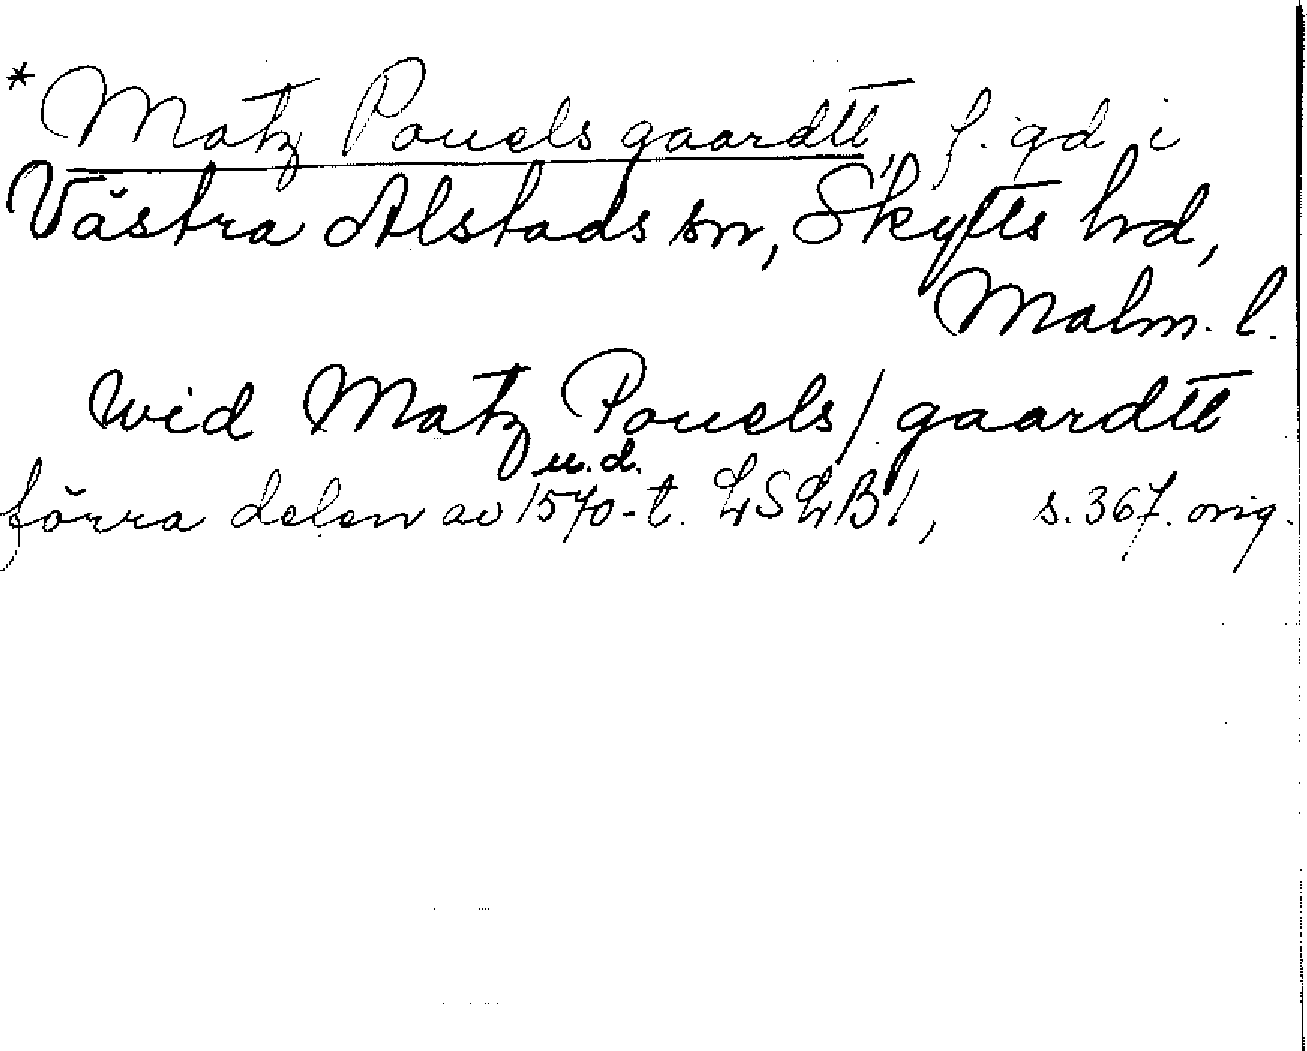 * Matz Pouels gaardtt, f. gd i
Västra Alstads sn, Skytts hd,
Malm. l.
wid Matz Pouels / gaardtt
u.d.
förra delen av 1570-t. LSLB1, s. 367. orig.